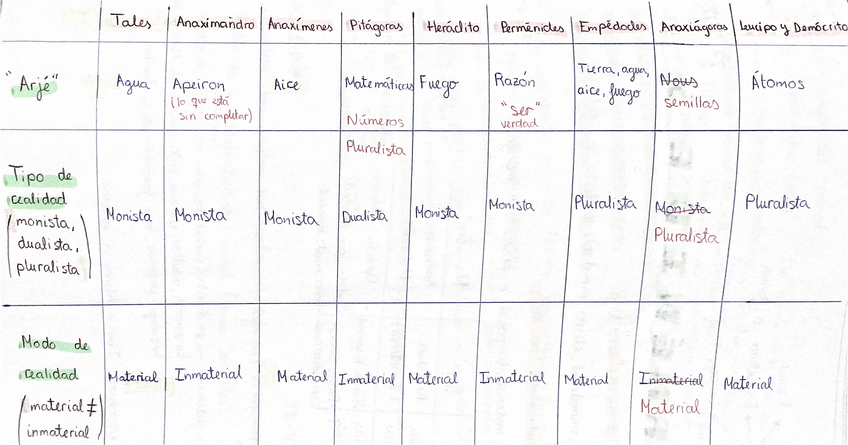 Tales Anaximandro Anaxímenes Pitágoras Heráclito Perménides Empédocles Anaxágoras Leucipo y Demócrito
"Arjé" Agua Apeiron Aire Matemáticas Fuego Razón Tierra, agua, Nous Átomos
(lo que está "ser" aire, fuego semillas
sin completar) Números verdad
Pluralista
Tipo de
realidad Monista Monista Monista Dualista Monista Monista Pluralista Monista Pluralista
(monista, Pluralista
dualista,
pluralista)
Modo de
realidad Material Inmaterial Material Inmaterial Material Inmaterial Material Inmaterial Material
(material ≠ Material
inmaterial)